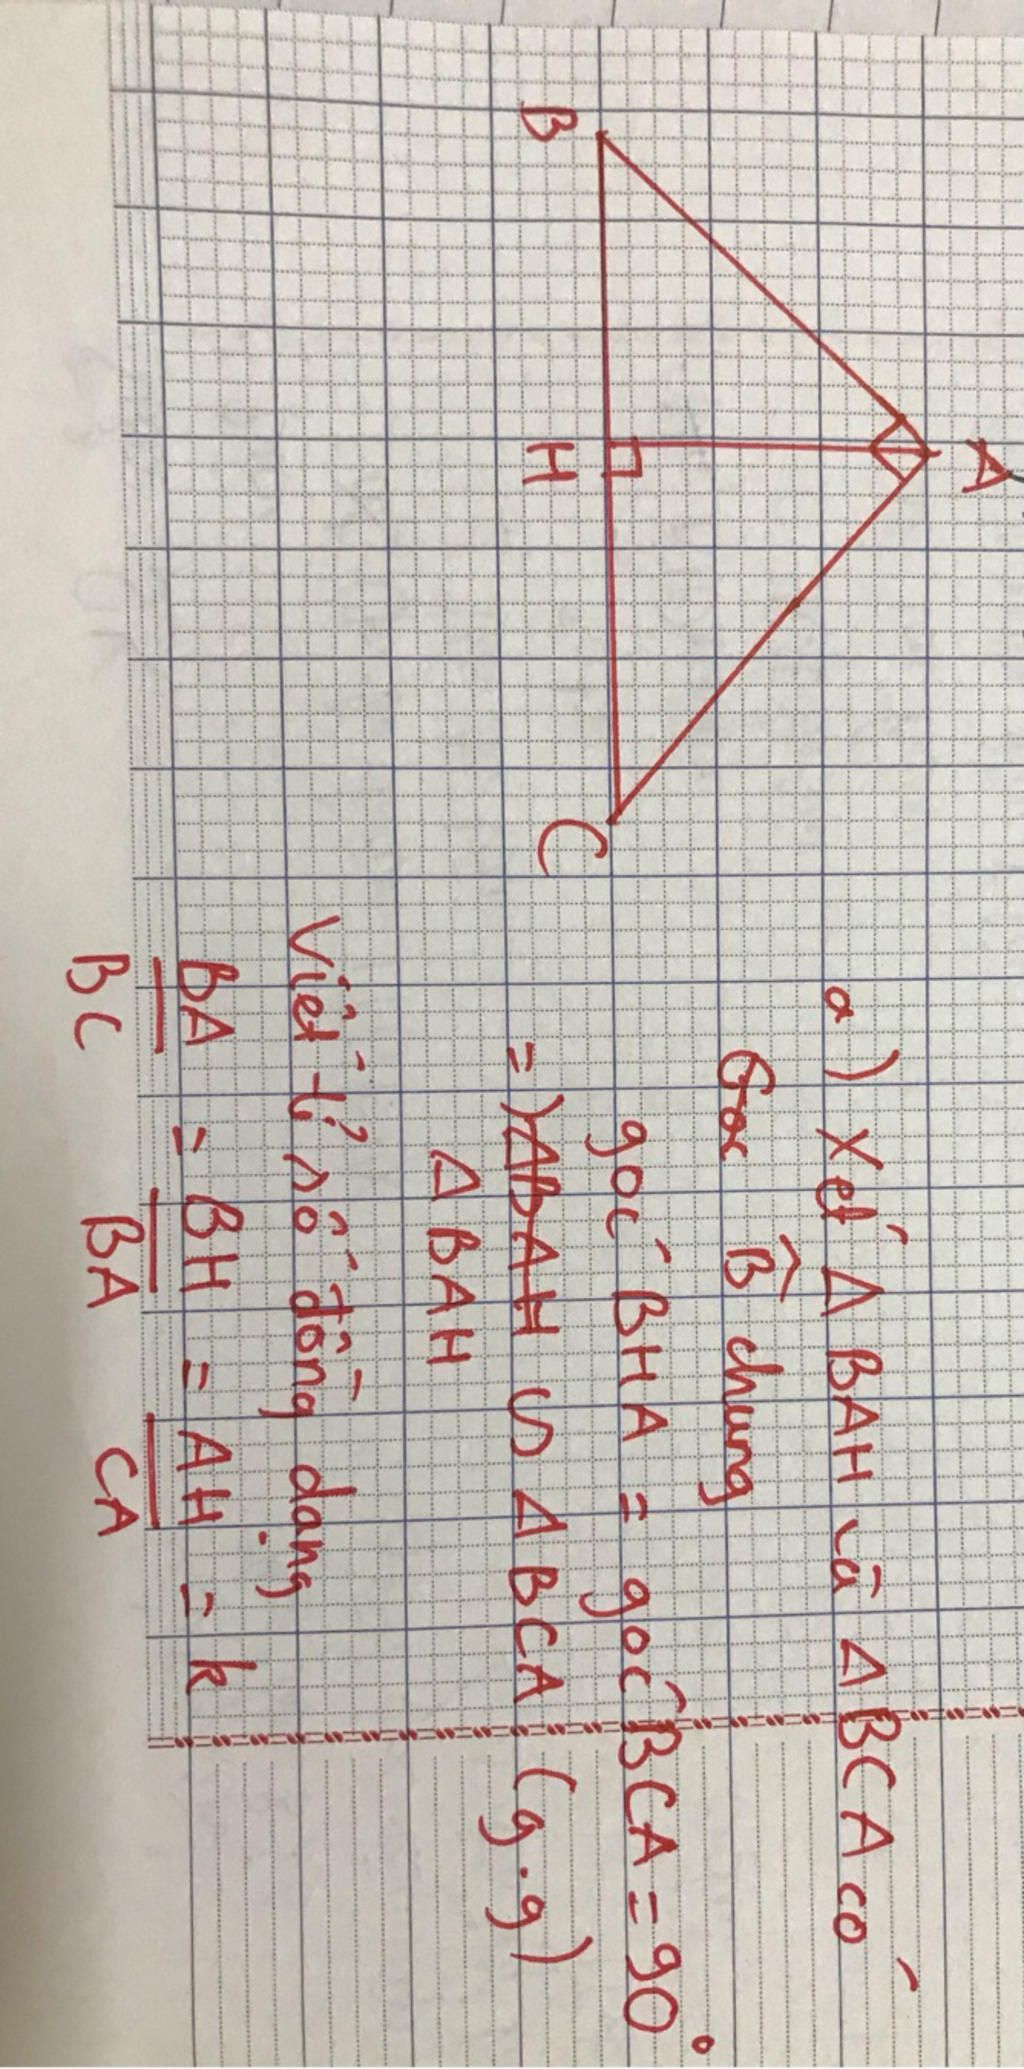 A
B
H
C
a) Xét Δ BAH và Δ BCA có
Góc B̂ chung
góc BHA = góc BCA = 90°
=) ΔBAH ᔕ Δ BCA (g.g)
Δ BAH
Viết tỉ số đồng dạng
BA/BC = BH/BA = AH/CA = k